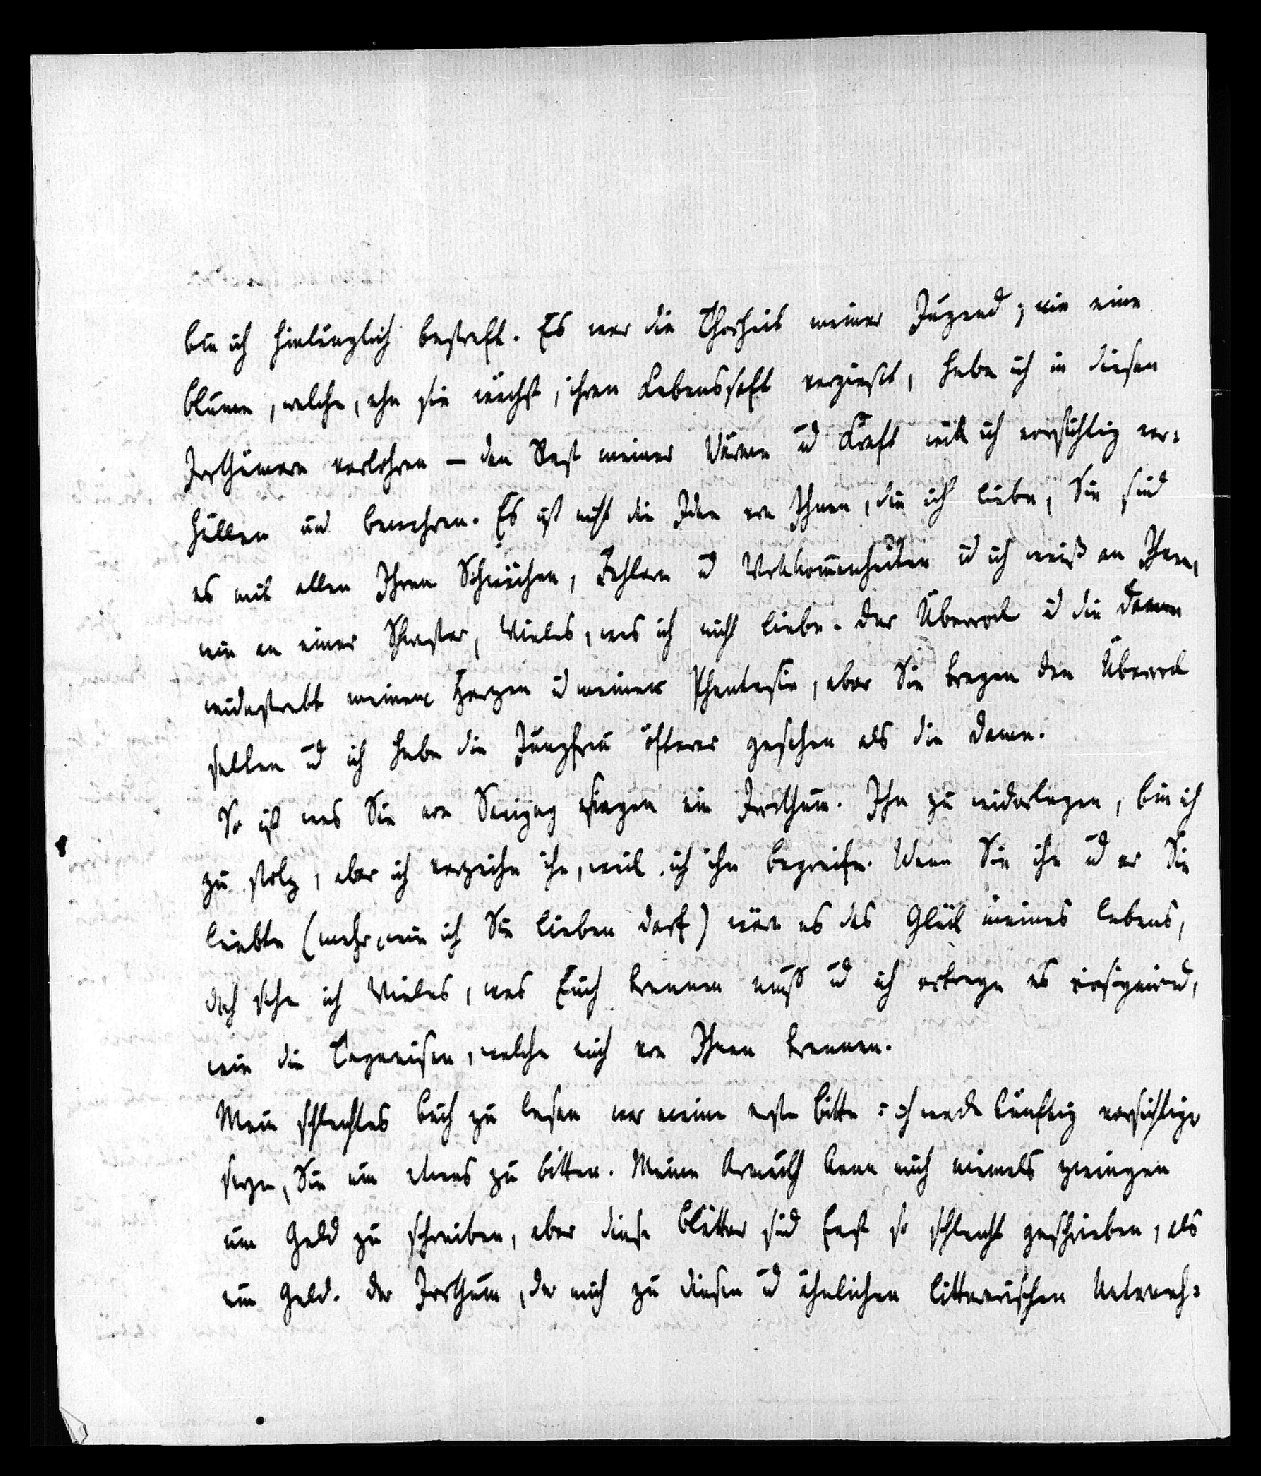 bin ich hinlänglich bestraft. Es war die Thorheit meiner Jugend; wie eine
Blume, welche, ehe sie wächst, ihren Lebenssaft vergießt, habe ich in diesen
Irrthümern verlohren — den Rest meiner Wärme ud Kraft will ich vorsichtig ver=
hüllen und bewahren. Es ist nicht die Idee von Ihnen, die ich liebe, Sie sind
es mit allen Ihren Schwächen, Fehlern ud Vollkommenheiten ud ich weiß an Ihnen,
wie an einer Schwester, Vieles, was ich nicht liebe. Der Überrock ud die Dame
widerstrebt meinem Herzen ud meiner Phantasie, aber Sie tragen den Überrock
selten ud ich habe die Jungfrau öfterer gesehen als die Dame.
So ist was Sie von sagen ein Irrthum. Ihn zu widerlegen, bin ich
zu stolz, aber ich verzeihe ihn, weil ich ihn begreife. Wenn Sie ihn ud er Sie
liebte (mehr, wie ich Sie lieben darf) wäre es das Glük meines Lebens,
doch sehe ich Vieles, was Euch trennen muß ud ich ertrage es resignirend,
wie die Tagereisen, welche mich von Ihnen trennen.
Mein schlechtes Buch zu lesen war meine erste Bitte: ich werde künftig vorsichtiger
seyn, Sie um etwas zu bitten. Meine Armuth kann mich niemals zwingen
um Geld zu schreiben, aber diese Blätter sind fast so schlecht geschrieben, als
um Geld. Der Irrthum, der mich zu diesen ud ähnlichen litterarischen Unterneh=